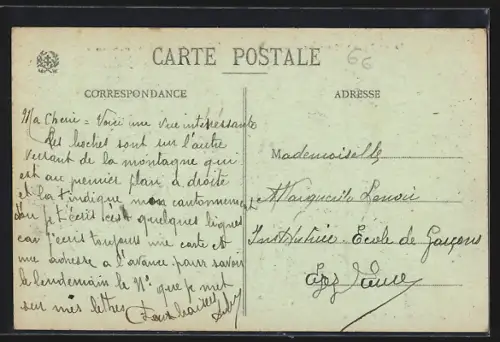 CARTE POSTALE
66
CORRESPONDANCE
ADRESSE
Ma Cherie = Voici une vue intéressante
Les boches sont sur l'autre
versant de la montagne qui
est au premier plan à droite
et la + indique mon cantonnement
d'ou je t'écris ces quelques lignes
car j'écris toujours une carte et
une adresse à l'avance pour savoir
le lendemain le N° que je met
sur mes lettres
Mademoiselle
Marguerite Lenoir
Institutrice École de Garçons